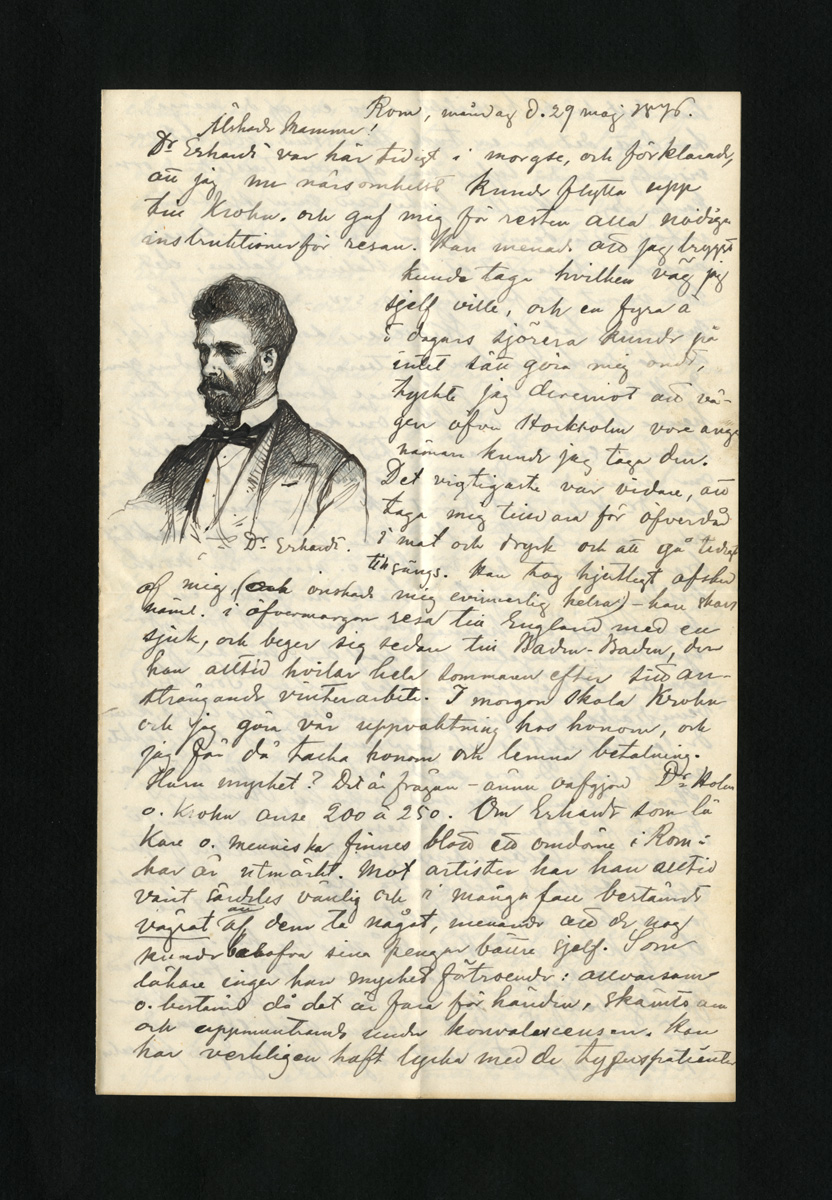 Rom, måndag d. 29 maj 1876.
Älskade Mamma!
Dr Erhardt var här tidigt i morgse, och förklarade,
att jag nu närsomhelst kunde flytta upp
till Krohn. och gaf mig för resten alla nödiga
instruktioner för resan. Han menade att jag tryggt
kunde taga hvilken väg jag
sjelf ville, och en fyra à
5 dagars sjöresa kunde på
intet sätt göra mig ondt,
tyckte jag deremot att vä-
gen öfver Stockholm vore ange
nämare kunde jag taga den.
Det vigtigaste var vidare, att
taga mig tillvara för öfverdåd
i mat och dryck och att gå tidigt
till sängs. Han tog hjertligt afsked
Dr Erhardt.
af mig (och önskade mig evinnerlig helsa) – han skall
näml. i öfvermorgon resa till England med en
sjuk, och beger sig sedan till Baden-Baden, der
han alltid hvilar hela sommaren efter sitt an-
strängande vinterarbete. I morgon skola Krohn
och jag göra vår uppvaktning hos honom, och
jag får då tacka honom och lemna betalning.
Huru mycket? Det är frågan – ännu oafgjord Dr Holm
o. Krohn anse 200 à 250. Om Erhardt som lä
kare o. menniska finnes blott ett omdöme i Rom:
han är utmärkt. Mot artister har han alltid
varit särdeles vänlig och i många fall bestämdt
vägrat att af dem ta något, menande att de nog
kunde behöfva sina pengar bättre sjelf. Som
läkare inger han mycket förtroende: allvarsam
o. bestämd då det är fara för handen, skämtsam
och uppmuntrande under konvalescensen. Han
har verkligen haft lycka med de typhuspatienter